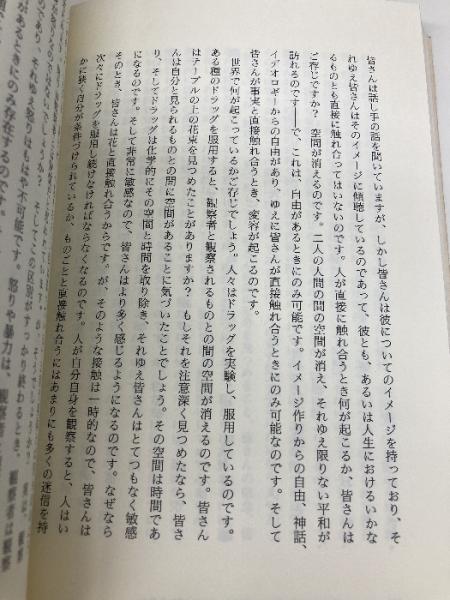 皆さんは話し手の話を聞いていますが、しかし皆さんは彼についてのイメージを持っており、そ
れゆえ皆さんはそのイメージに傾聴しているのであって、彼とも、あるいは人生におけるいかな
るものとも直接に触れ合ってはいないのです。人が直接に触れ合うとき何が起こるか、皆さんは
ご存じですか？　空間が消えるのです。二人の人間の間の空間が消え、それゆえ限りない平和が
訪れるのです──で、これは、自由があるときにのみ可能です。イメージ作りからの自由、神話、
イデオロギーからの自由があり、ゆえに皆さんが直接触れ合うときにのみ可能なのです。そして
皆さんが事実と直接触れ合うとき、変容が起こるのです。
世界で何が起こっているかご存じでしょう。人々はドラッグを実験し、服用しているのです。
ある種のドラッグを服用すると、観察者と観察されるものとの間の空間が消えるのです。皆さん
はテーブルの上の花束を見つめたことがありますか？　もしそれを注意深く見つめたなら、皆さ
んは自分と見られるものとの間に空間があることに気づいたことでしょう。その空間は時間であ
り、そしてドラッグは化学的にその空間と時間を取り除き、それゆえ皆さんはとてつもなく敏感
になるのです。そして非常に敏感なので、皆さんはより多く感じるようになるのです。なぜなら
そのとき、皆さんは花と直接触れ合うからです。が、そのような接触は一時的なので、皆さんは
次々にドラッグを服用し続けなければならなくなるのです。人が自分自身を観察すると、人はい
かに狭く自分が条件づけられているか、ものごとと直接触れ合うにはあまりにも多くの迷信を持